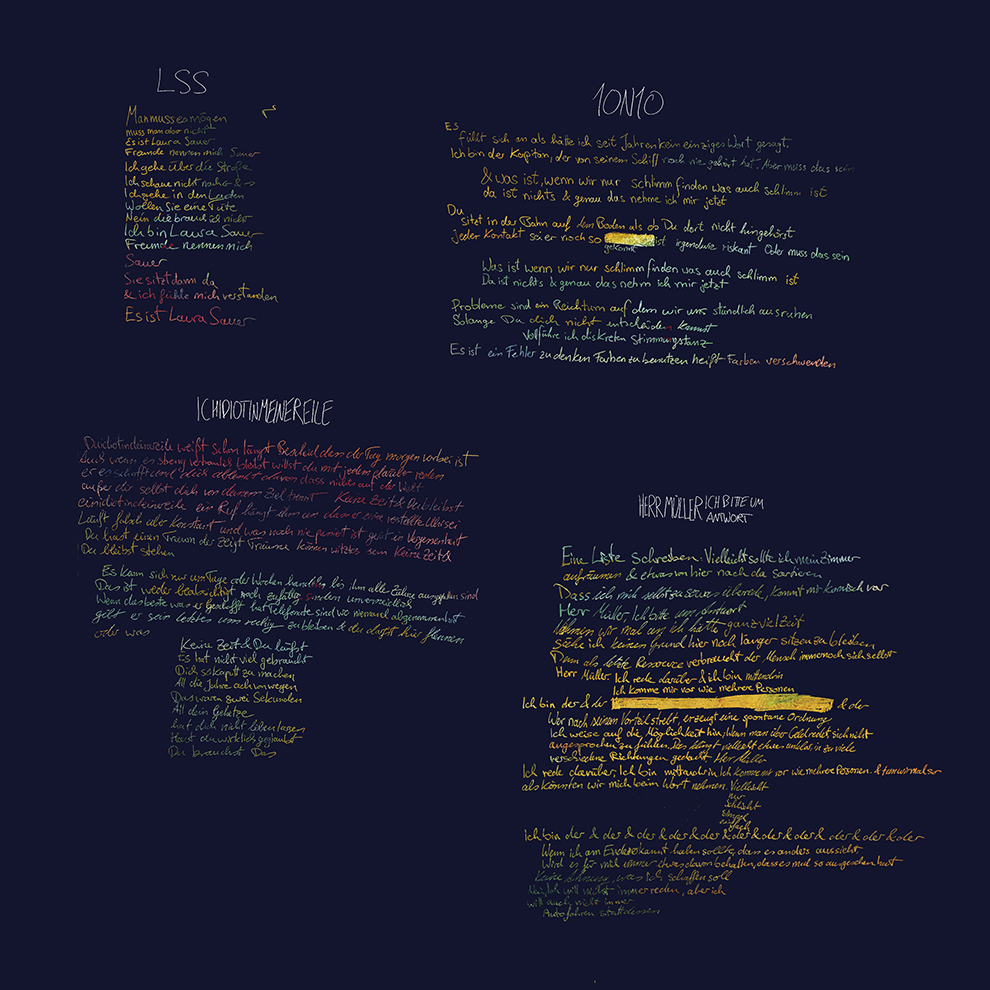 LSS
Man muss es mögen
muss man aber nicht
Es ist Laura Sauer
Freunde nennen mich Sauer
Ich gehe über die Straße
Ich schaue nicht nach
Ich gehe in den Laden
Wollen Sie eine Tüte
Nein die brauch ich nicht
Ich bin Laura Sauer
Freunde nennen mich
Sauer
Sie sitzt dann da
& ich fühle mich verstanden
Es ist Laura Sauer
10N10
Es
fühlt sich an als hätte ich seit Jahren kein einziges Wort gesagt.
Ich bin der Kapitän, der von seinem Schiff noch nie gehört hat. Aber muss das sein
& was ist, wenn wir nur schlimm finden was auch schlimm ist
da ist nichts & genau das nehme ich mir jetzt
Du
sitzt in der Bahn auf dem Boden als ob Du dort nicht hingehörst
jeder Kontakt sei er noch so ist irgendwie riskant Oder muss das sein
gekonnt
Was ist wenn wir nur schlimm finden was auch schlimm ist
Da ist nichts & genau das nehm ich mir jetzt
Probleme sind ein Reichtum auf dem wir uns ständlich ausruhen
Solange Du dich nicht entscheiden kannst
Vollführe ich diskreten Stimmungstanz
Es ist ein Fehler zu denken Farben zu benutzen heißt Farben verschwenden
ICHIDIOTINMEINEREILE
Duidiotindeinereile weißt schon längst Bescheid dass der Tag morgen vorbei ist
Auch wenn es streng vertraulich bleibt willst du mit jedem darüber reden
er es schafft und dich ablenkt davon dass nichts auf der Welt
außer dir selbst dich von deinem Ziel trennt Keine Zeit & Du bleibst
einidiotindeinereile ein Ruf längt ihm um das er eine
Läuft falsch aber konstant und was noch nie passiert ist gerät in Vergessenheit
Du hast einen Traum der zeigt Träume können witzlos sein Keine Zeit &
Du bleibst stehen
Es kann sich nur um Tage oder Wochen handeln bis ihm alle Zähne ausgefallen sind
Das ist weder beabsichtigt noch zufällig sondern unvermeidlich
Wenn das beste was er geschafft hat Telefonate sind wo niemand abgenommen hat
gibt er sein letztes um ruhig zu bleiben & du darfst hier flennen
oder was
Keine Zeit & Du läufst
Es hat nicht viel gebraucht
Dich so kaputt zu machen
All die Jahre ach von wegen
Das waren zwei Sekunden
All dein Gelatze
hat dich nicht leben lassen
Hast du wirklich geglaubt
Du brauchst Das
HERR MÜLLER ICH BITTE UM
ANTWORT
Eine Liste Schreiben. Vielleicht sollte ich mein Zimmer
aufräumen & etwas von hier nach da sortieren
Dass ich mich selbst zu sowas überrede, kommt mir komisch vor
Herr Müller, Ich bitte um Antwort
Nehmen wir mal an, ich hätte ganz viel Zeit
Sähe ich keinen Grund hier noch länger sitzen zu bleiben
Denn als letzte Ressource verbraucht der Mensch immer noch sich selbst
Herr Müller. Ich rede darüber & ich bin mittendrin
Ich komme mir vor wie mehrere Personen
Ich bin der & der & der
Wer nach seinem Vorteil strebt, erzeugt eine spontane Ordnung
Ich weise auf die Möglichkeit hin, Wenn man über Geld redet, sich nicht
angesprochen zu fühlen. Das klingt vielleicht etwas unklar, in zu viele
verschiedene Richtungen gedacht Herr Müller
Ich rede darüber, Ich bin mittendrin Ich komme mir vor wie mehrere Personen. & tun wir mal so
als könnten wir mich beim Wort nehmen. Vielleicht
nur
schlicht
einfach
Ich bin der & der & der & der & der & der & der & der & der & der & der
Wenn ich am Ende erkannt haben sollte, dass es anders aussieht
Wird es für mich immer etwas davon behalten, dass es mal so ausgesehen hat
Keine Ahnung, was ich schaffen soll
Nein, Ich will nicht immer reden, aber ich
will auch nicht immer
Autofahren stattdessen